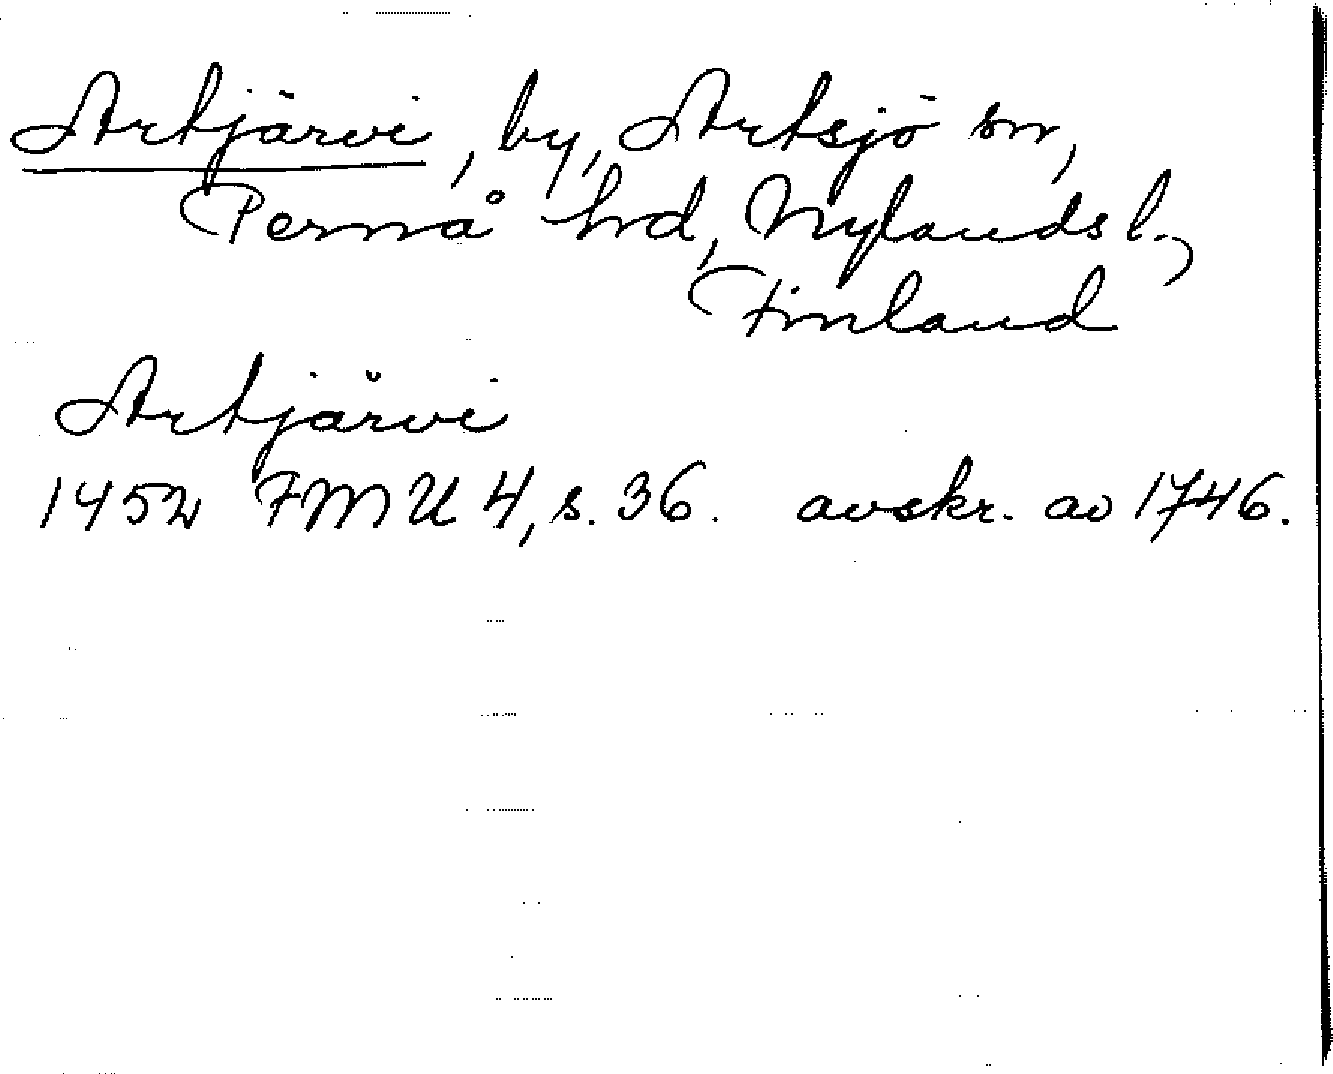 Artjärvi, by, Artsjö sn,
Pernå hrd, Nylands l.,
Finland
Artjärvi
1452 FMU 4, s. 36. avskr. av 1746.